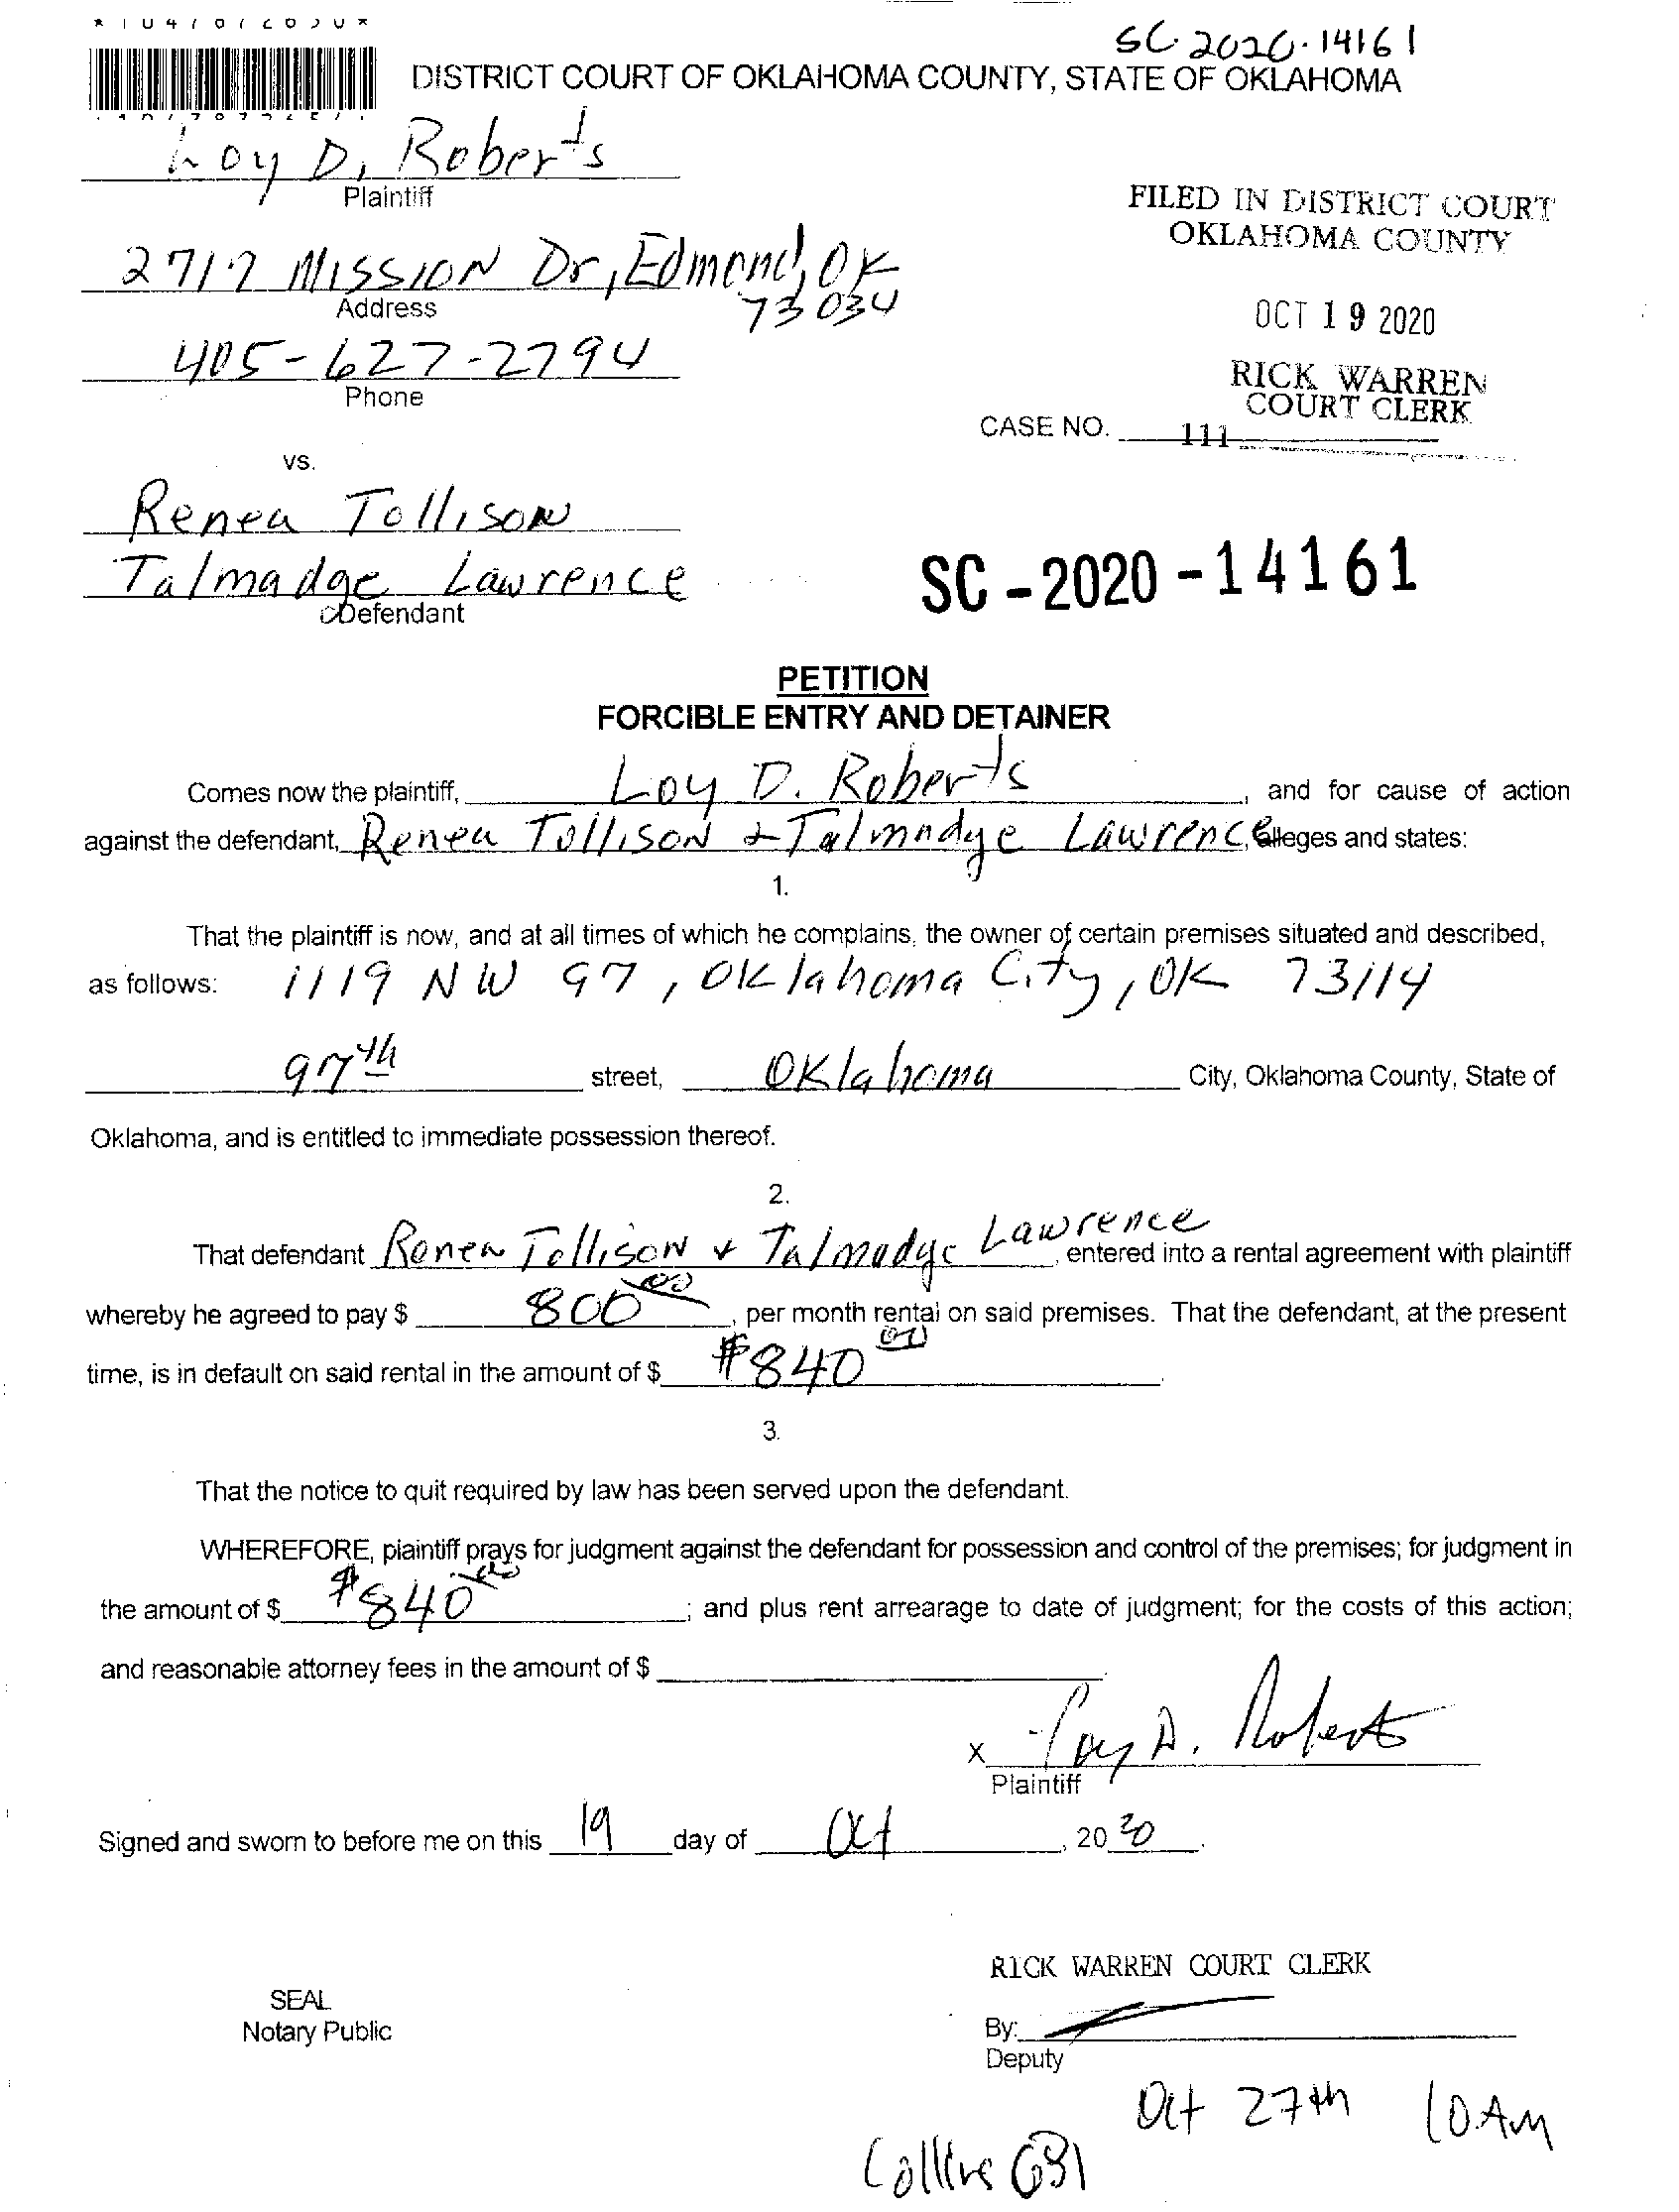 SC-2020-14161
DISTRICT COURT OF OKLAHOMA COUNTY, STATE OF OKLAHOMA
Loy D. Roberts
Plaintiff
FILED IN DISTRICT COURT
OKLAHOMA COUNTY
2717 Mission Dr, Edmond, OK
Address
73034
OCT 19 2020
405-627-2794
Phone
RICK WARREN
COURT CLERK
CASE NO. 111
vs.
Renea Tollison
Talmadge Lawrence
Defendant
SC-2020-14161
PETITION
FORCIBLE ENTRY AND DETAINER
Comes now the plaintiff, Loy D. Roberts, and for cause of action
against the defendant, Renea Tollison & Talmadge Lawrence alleges and states:
1.
That the plaintiff is now, and at all times of which he complains, the owner of certain premises situated and described,
as follows: 1119 NW 97, Oklahoma City, OK 73114
97th street, Oklahoma City, Oklahoma County, State of
Oklahoma, and is entitled to immediate possession thereof.
2.
That defendant Renea Tollison & Talmadge Lawrence, entered into a rental agreement with plaintiff
whereby he agreed to pay $ 800 00, per month rental on said premises. That the defendant, at the present
time, is in default on said rental in the amount of $ $840 00.
3.
That the notice to quit required by law has been served upon the defendant.
WHEREFORE, plaintiff prays for judgment against the defendant for possession and control of the premises; for judgment in
the amount of $ $840 00; and plus rent arrearage to date of judgment; for the costs of this action;
and reasonable attorney fees in the amount of $
x Loy D. Roberts
Plaintiff
Signed and sworn to before me on this 19 day of Oct, 2020.
RICK WARREN COURT CLERK
SEAL
Notary Public
By:
Deputy
Oct 27th 10AM
Collins 631